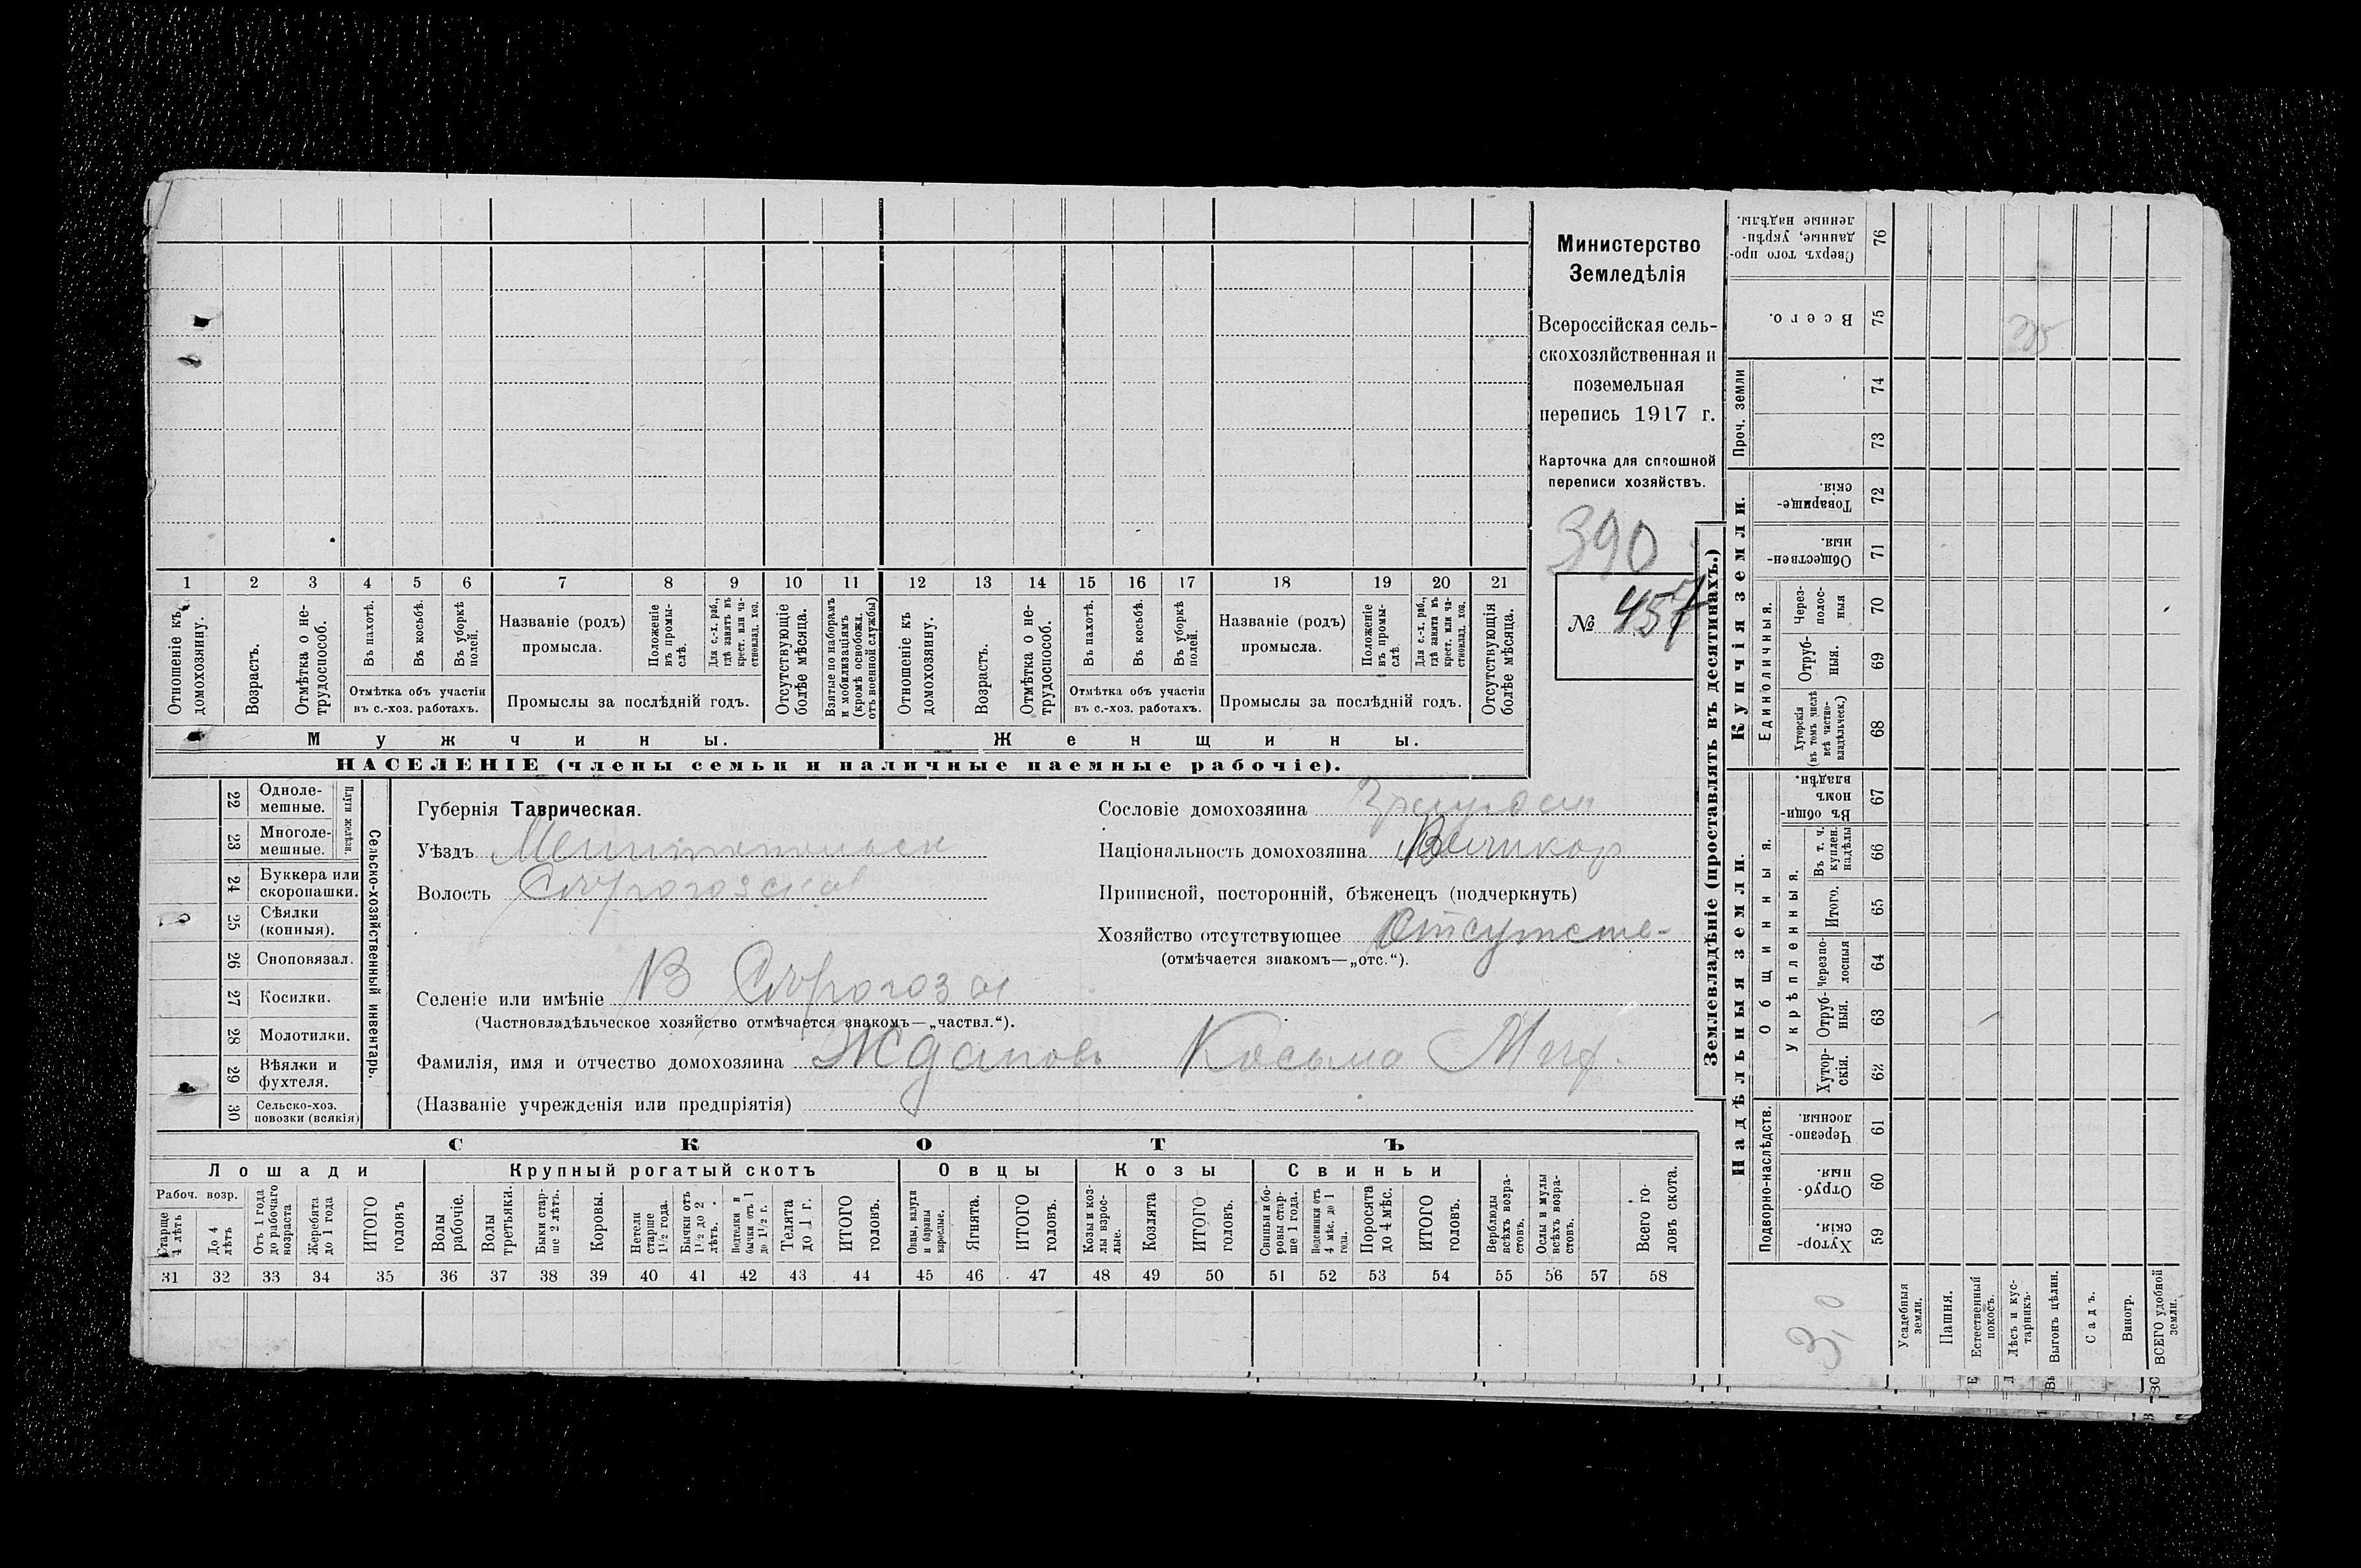 Министерство
Земледѣлія
Всероссійская сель-
скохозяйственная и
поземельная
перепись 1917 г.
Карточка для сплошной
переписи хозяйствъ.
390
№ 457
1 2 3 4 5 6 7 8 9 10 11 12 13 14 15 16 17 18 19 20 21
Отношеніе къ домохозяину.
Возрастъ.
Отмѣтка о не-трудоспособ.
Въ пахотѣ.
Въ косьбѣ.
Въ уборкѣ полей.
Отмѣтка объ участіи
въ с.-хоз. работахъ.
Названіе (родъ)
промысла.
Положеніе въ промы-слѣ.
Для с.-х. раб., гдѣ занятъ въ крест. или ча-стновлад. хоз.
Промыслы за послѣдній годъ.
Отсутствующіе болѣе мѣсяца.
Взятые по наборамъ и мобилизаціямъ (кромѣ освобожд. отъ военной службы)
Отношеніе къ домохозяину.
Возрастъ.
Отмѣтка о не-трудоспособ.
Въ пахотѣ.
Въ косьбѣ.
Въ уборкѣ полей.
Отмѣтка объ участіи
въ с.-хоз. работахъ.
Названіе (родъ)
промысла.
Положеніе въ промы-слѣ.
Для с.-х. раб., гдѣ занята въ крест. или ча-стновлад. хоз.
Промыслы за послѣдній годъ.
Отсутствующія болѣе мѣсяца.
Мужчины.
Женщины.
НАСЕЛЕНІЕ (члены семьи и наличные наемные рабочіе).
22 Одноле-мешные.
23 Многоле-мешные.
Плуги желѣзн.
24 Буккера или скоропашки.
25 Сѣялки (конныя).
26 Сноповязал.
27 Косилки.
28 Молотилки.
29 Вѣялки и фухтеля.
30 Сельско-хоз. повозки (всякія)
Сельско-хозяйственный инвентарь.
Губернія Таврическая.
Уѣздъ Мелитопольск
Волость
Селеніе или имѣніе В Сѣрогозы
(Частновладѣльческое хозяйство отмѣчается знакомъ—„частвл.“).
Фамилія, имя и отчество домохозяина Ждановъ Косьма Мих.
(Названіе учрежденія или предпріятія)
Сословіе домохозяина
Національность домохозяина Великор
Приписной, посторонній, бѣженецъ (подчеркнуть)
Хозяйство отсутствующее Отсутств-
(отмѣчается знакомъ—„отс.“).
СКОТЪ
Лошади
Крупный рогатый скотъ
Овцы
Козы
Свиньи
Рабоч. возр.
Старше 4 лѣтъ
До 4 лѣтъ
Отъ 1 года до рабочаго возраста
Жеребята до 1 года
ИТОГО головъ
Волы рабочіе.
Волы третьяки.
Быки стар-ше 2 лѣтъ.
Коровы.
Нетели старше 1½ года.
Бычки отъ 1½ до 2 лѣтъ.
Подтелки и бычки отъ 1 до 1½ г.
Телята до 1 г.
ИТОГО головъ.
Овцы, валухи и бараны взрослые.
Ягнята.
ИТОГО головъ.
Козы и коз-лы взрос-лые.
Козлята
ИТОГО головъ.
Свиньи и бо-ровы стар-ше 1 года.
Подсвинки отъ 4 мѣс. до 1 года.
Поросята до 4 мѣс.
ИТОГО головъ.
Верблюды всѣхъ возра-стовъ.
Ослы и мулы всѣхъ возра-стовъ.
Всего го-ловъ скота.
31 32 33 34 35 36 37 38 39 40 41 42 43 44 45 46 47 48 49 50 51 52 53 54 55 56 57 58
Землевладѣніе (проставлять въ десятинахъ.)
Надѣльныя земли.
Купчія земли.
Подворно-наслѣдств.
Общинныя.
Укрѣпленныя.
Единоличныя.
Проч. земли
Хутор-скія. 59
Отруб-ныя. 60
Черезпо-лосныя. 61
Хутор-скія. 62
Отруб-ныя. 63
Черезпо-лосныя 64
Итого. 65
Въ т. ч. куплен. надѣлы 66
Въ общи-номъ владѣн. 67
Хуторскія (въ томъ числѣ всѣ частно-владѣльческ.) 68
Отруб-ныя. 69
Через-полос-ныя 70
Обществен-ныя. 71
Товарище-скія. 72
73
74
Всего. 75
Сверхъ того про-данные, укрѣп-ленные надѣлы. 76
3,0
Усадебныя земли.
Пашня.
Естественный покосъ.
Лѣсъ и кус-тарникъ.
Выгонъ цѣлин.
Садъ.
Виногр.
ВСЕГО удобной земли.